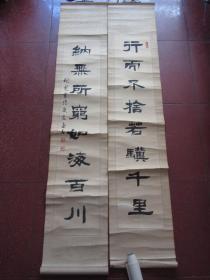 行而不捨若驥千里
納無所窮如海百川